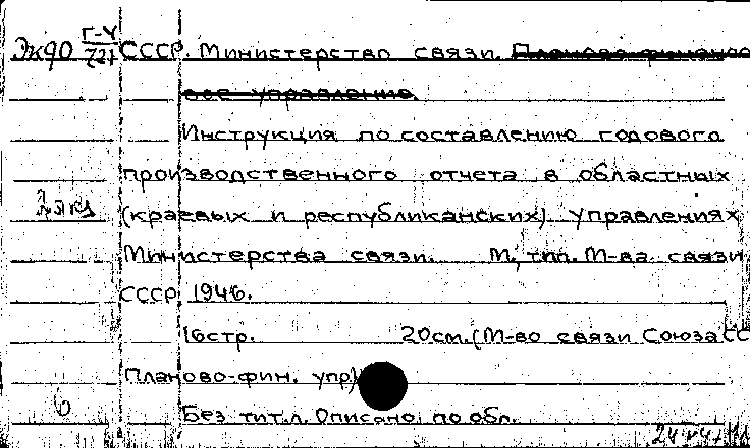 Эк90 Г-4/721 СССР. Министерство связи. Планово-финансо
вое управление.
Инструкция по составлению годового
производственного отчета в областных
(краевых и республиканских) управлениях
Министерства связи. М., тип. М-ва связи
СССР, 1946.
16стр. 20см. (М-во связи Союза СС
Планово-фин. упр)
б Без тит.л. Описано по обл.